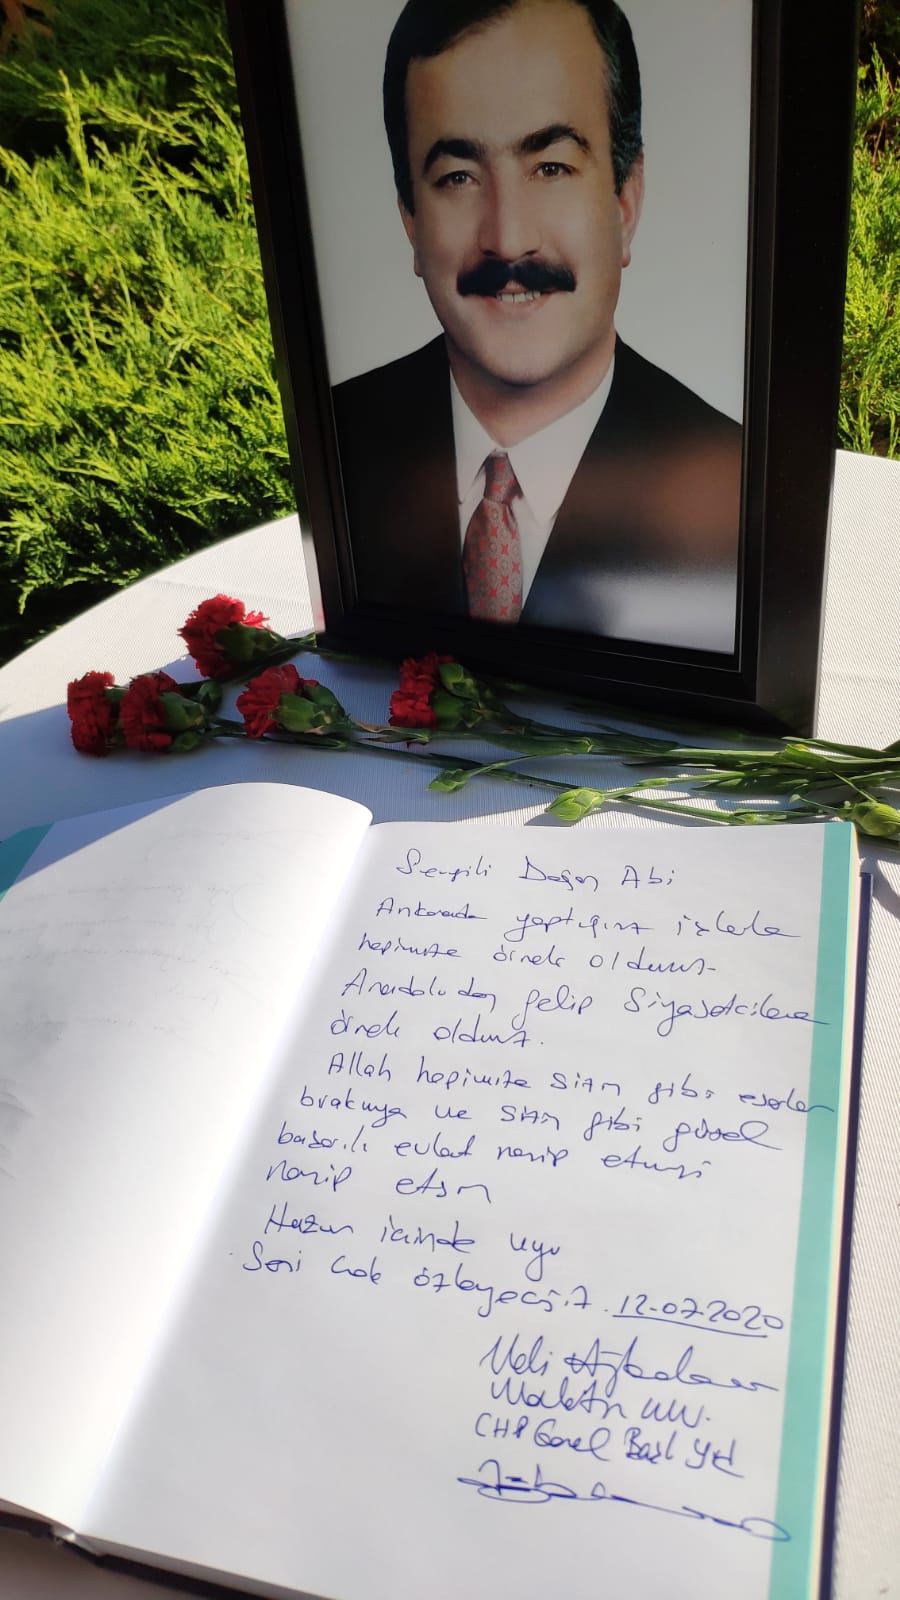 Sevgili Doğan Abi
Ankarada yaptığınız işlerle
hepimize örnek oldunuz.
Anadoludan gelip Siyasetcilere
örnek oldunuz.
Allah hepimize sizin gibi eserler
bırakmaya ve sizin gibi güzel
başarılı evlat nasip etmeyi
nasip etsin
Huzur içinde uyu
Seni çok özleyeceğiz. 12-07-2020
Veli Ağbaba
Malatya
CHP Genel Başk Yrd